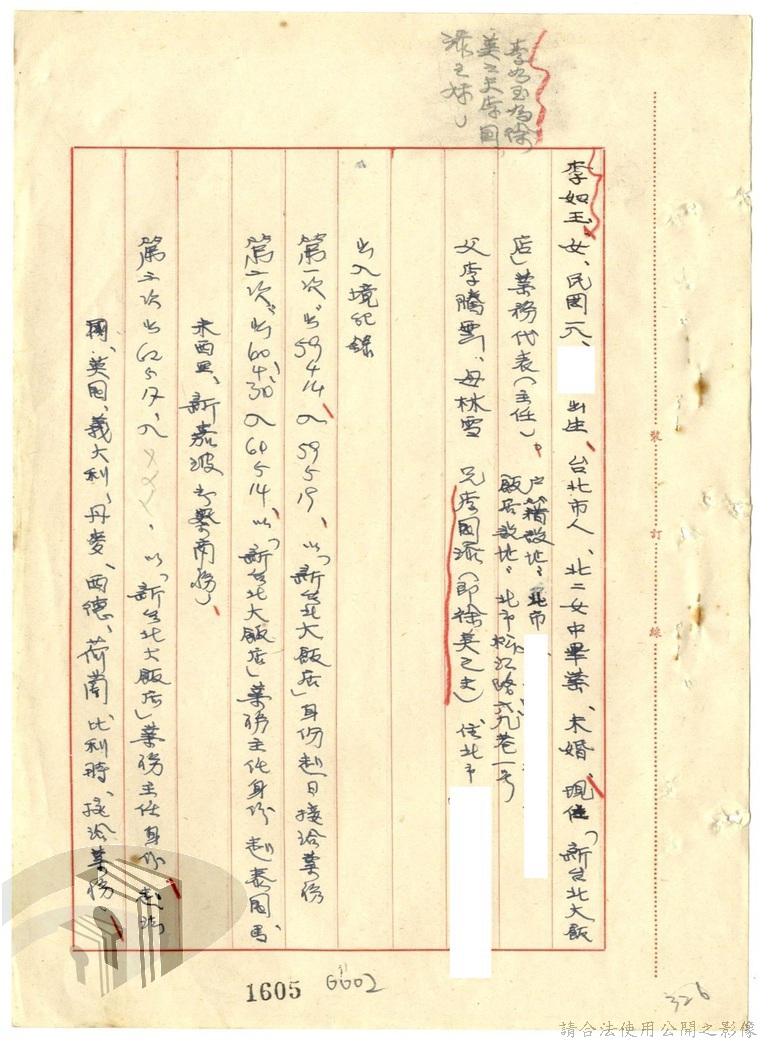 李如玉為徐
英之夫李國
添之妹)
李如玉、女、民國一八、出生、台北市人、北二女中畢業、未婚、現任「新台北大飯
店」業務代表(主任)。
戶籍設址:北市
飯店設址:北市松江路六九巷一号
父李騰雲、母林雪 兄李国添(即徐英之夫)住北市
出入境紀錄
第一次、出59414入59519、以「新台北大飯店」身份赴日接洽業務
第二次、出60430入60514、以「新台北大飯店」業務主任身份赴泰国、馬
来西亞、新嘉波考察商務、
第三次出62517、入、以「新台北大飯店」業務主任身份赴法
國、英国、義大利、丹麥、西德、荷蘭、比利時、接洽業務、
裝
訂
線
1605
326
請合法使用公開之影像